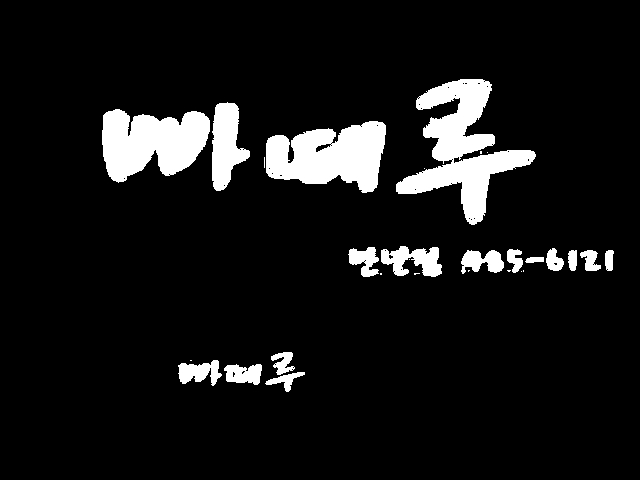 빠떼루
만년점 485-6121
빠떼루